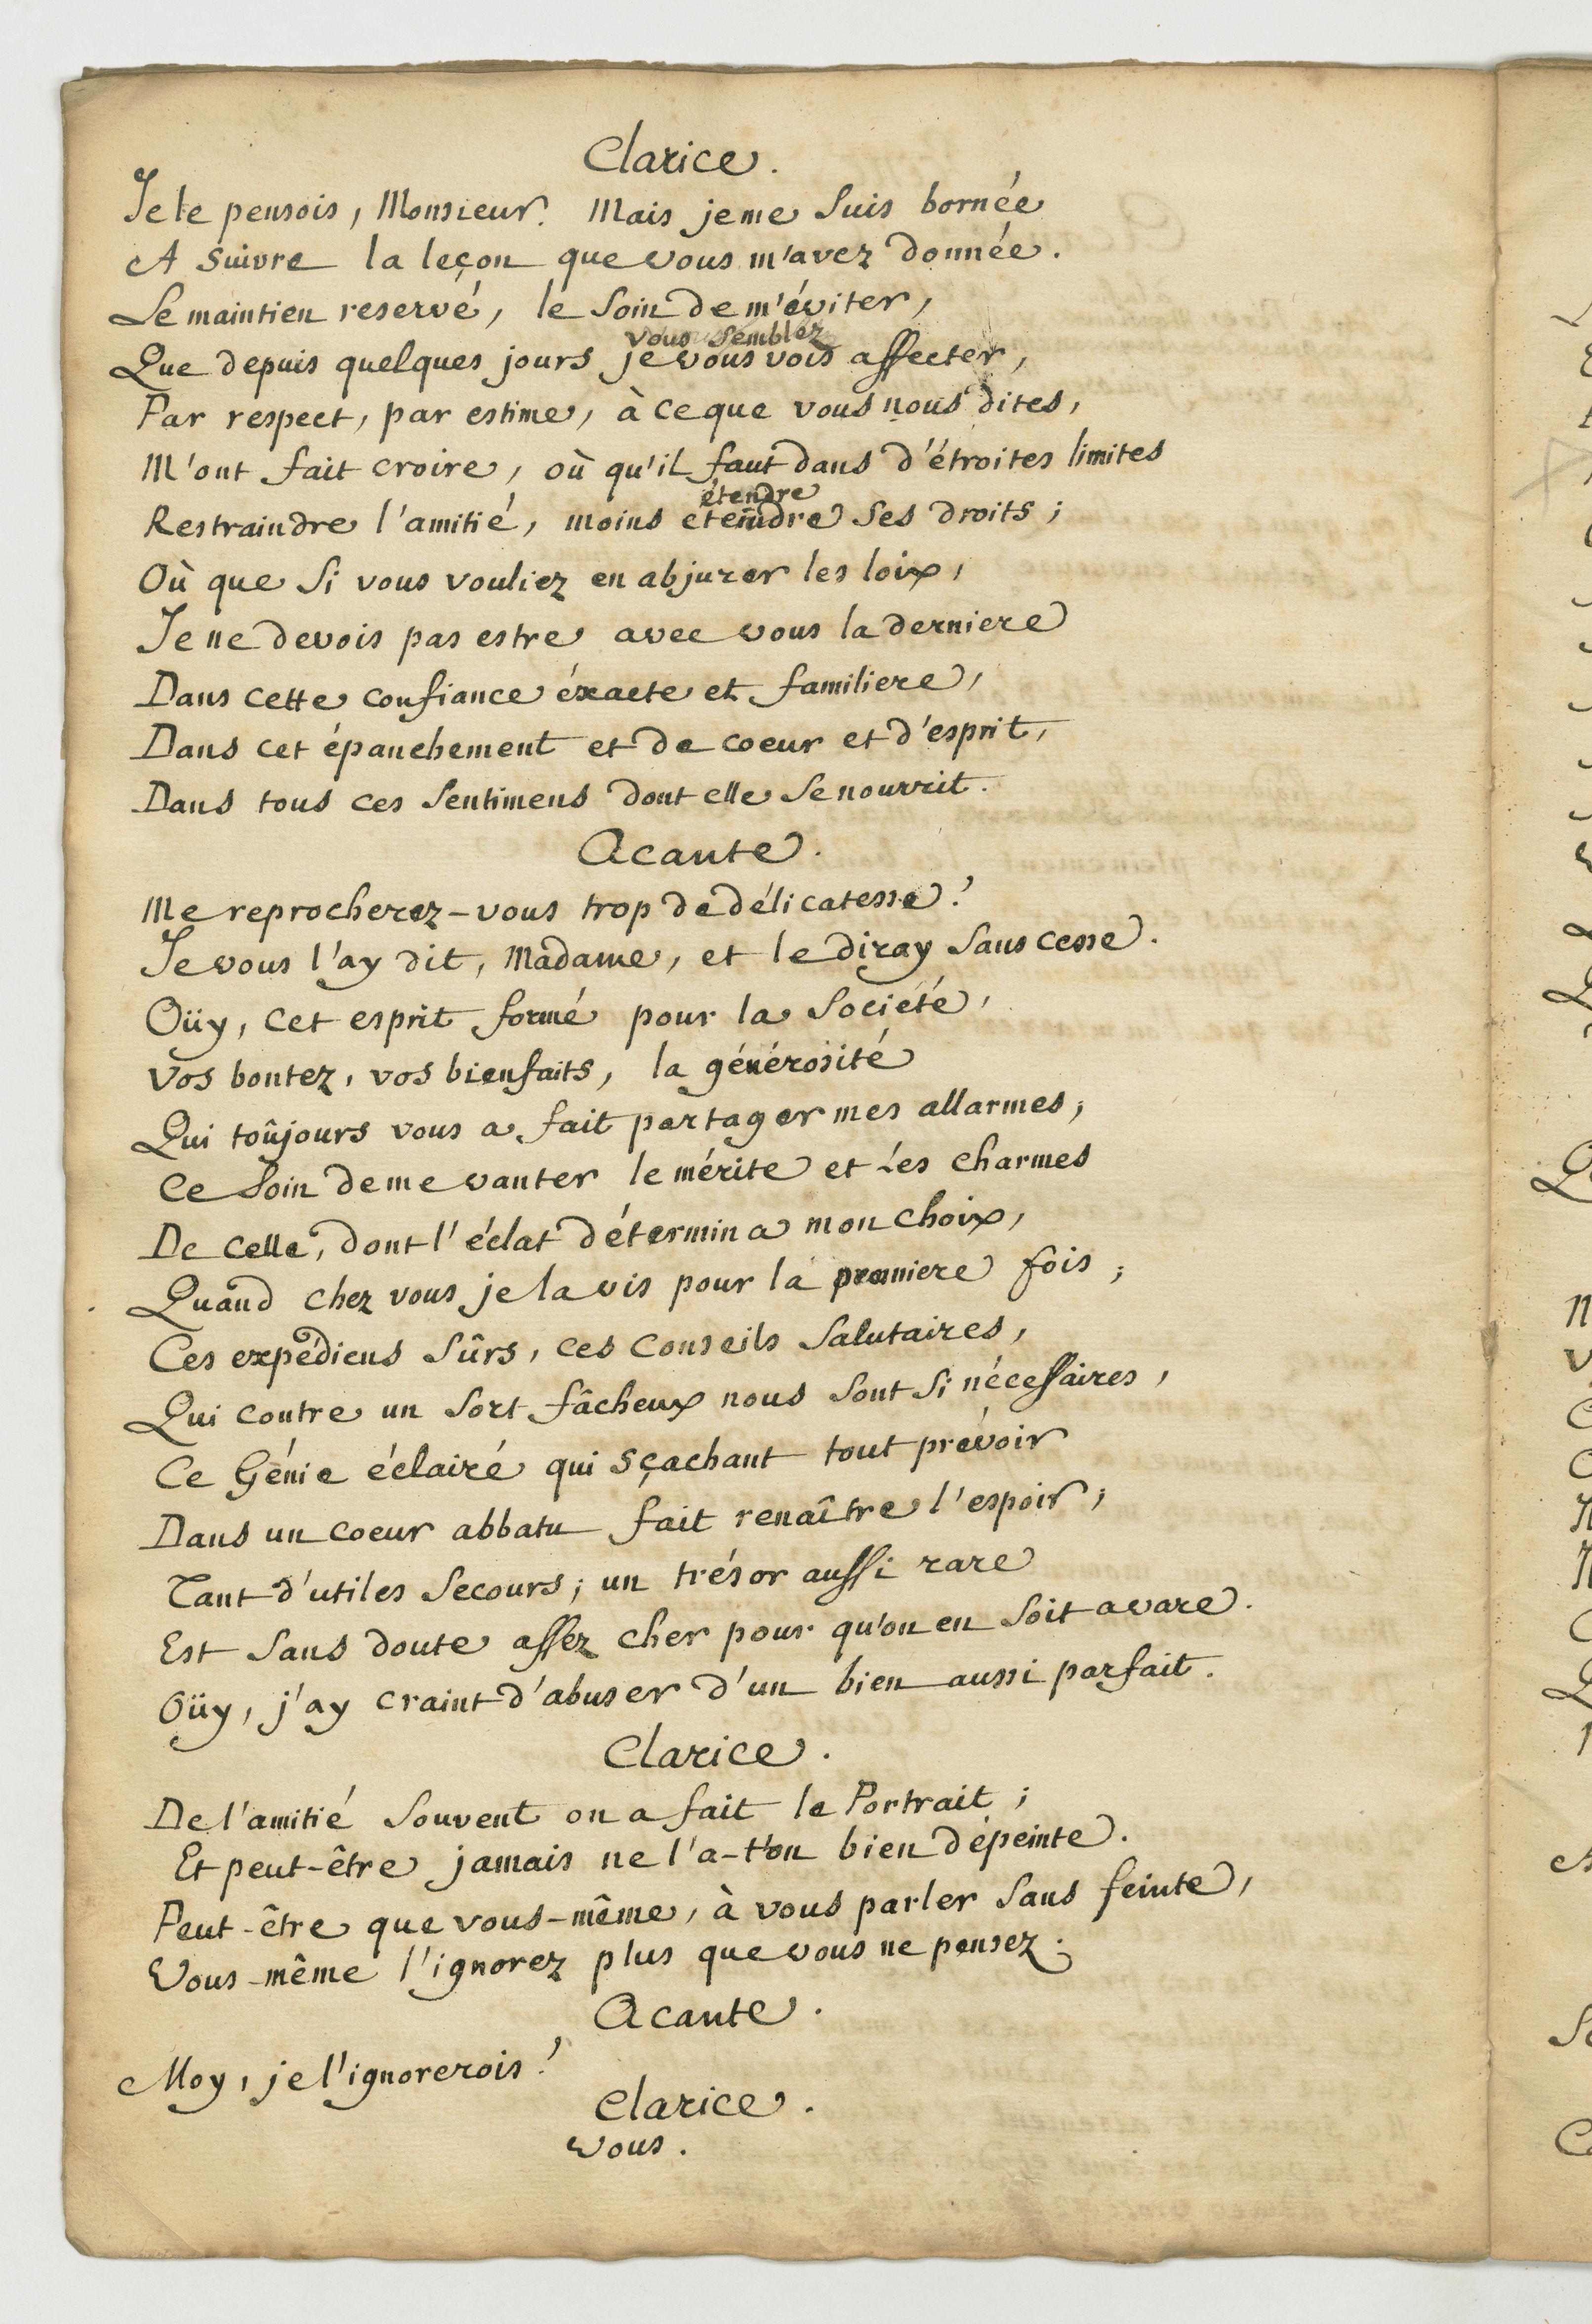 Clarice.
Je le pensois, Monsieur. Mais je me suis bornée
A suivre la leçon que vous m'avez donnée.
Le maintien reservé, le soin de m'éviter,
vous semblez
Que depuis quelques jours je vous vois affecter,
Par respect, par estime, à ce que vous nous dites,
M'ont fait croire, où qu'il faut dans d'étroites limites
étendre
Restraindre l'amitié, moins éteindre ses droits;
Où que si vous vouliez en abjurer les loix,
Je ne devois pas estre avec vous la derniere
Dans cette confiance éxacte et familiere,
Dans cet épanchement et de coeur et d'esprit,
Dans tous ces sentimens dont elle se nourrit.
Acante.
Me reprocherez-vous trop de délicatesse?
Je vous l'ay dit, Madame, et le diray sans cesse.
Oüy, cet esprit formé pour la société,
Vos bontez, vos bienfaits, la générosité
Qui toûjours vous a fait partager mes allarmes;
Ce soin de me vanter le mérite et les charmes
De celle, dont l'éclat détermina mon choix,
Quand chez vous je la vis pour la premiere fois;
Ces expédiens sûrs, ces conseils salutaires,
Qui contre un sort fâcheux nous sont si nécessaires,
Ce Génie éclairé qui sçachant tout prévoir
Dans un coeur abbatu fait renaître l'espoir;
Tant d'utiles secours; un trésor aussi rare
Est sans doute assez cher pour qu'on en soit avare.
Oüy, j'ay craint d'abuser d'un bien aussi parfait.
Clarice.
De l'amitié souvent on a fait le Portrait;
Et peut-être jamais ne l'a-t'on bien dépeinte.
Peut-être que vous-même, à vous parler sans feinte,
Vous-même l'ignorez plus que vous ne pensez.
Acante.
Moy, je l'ignorerois?
Clarice.
Vous.